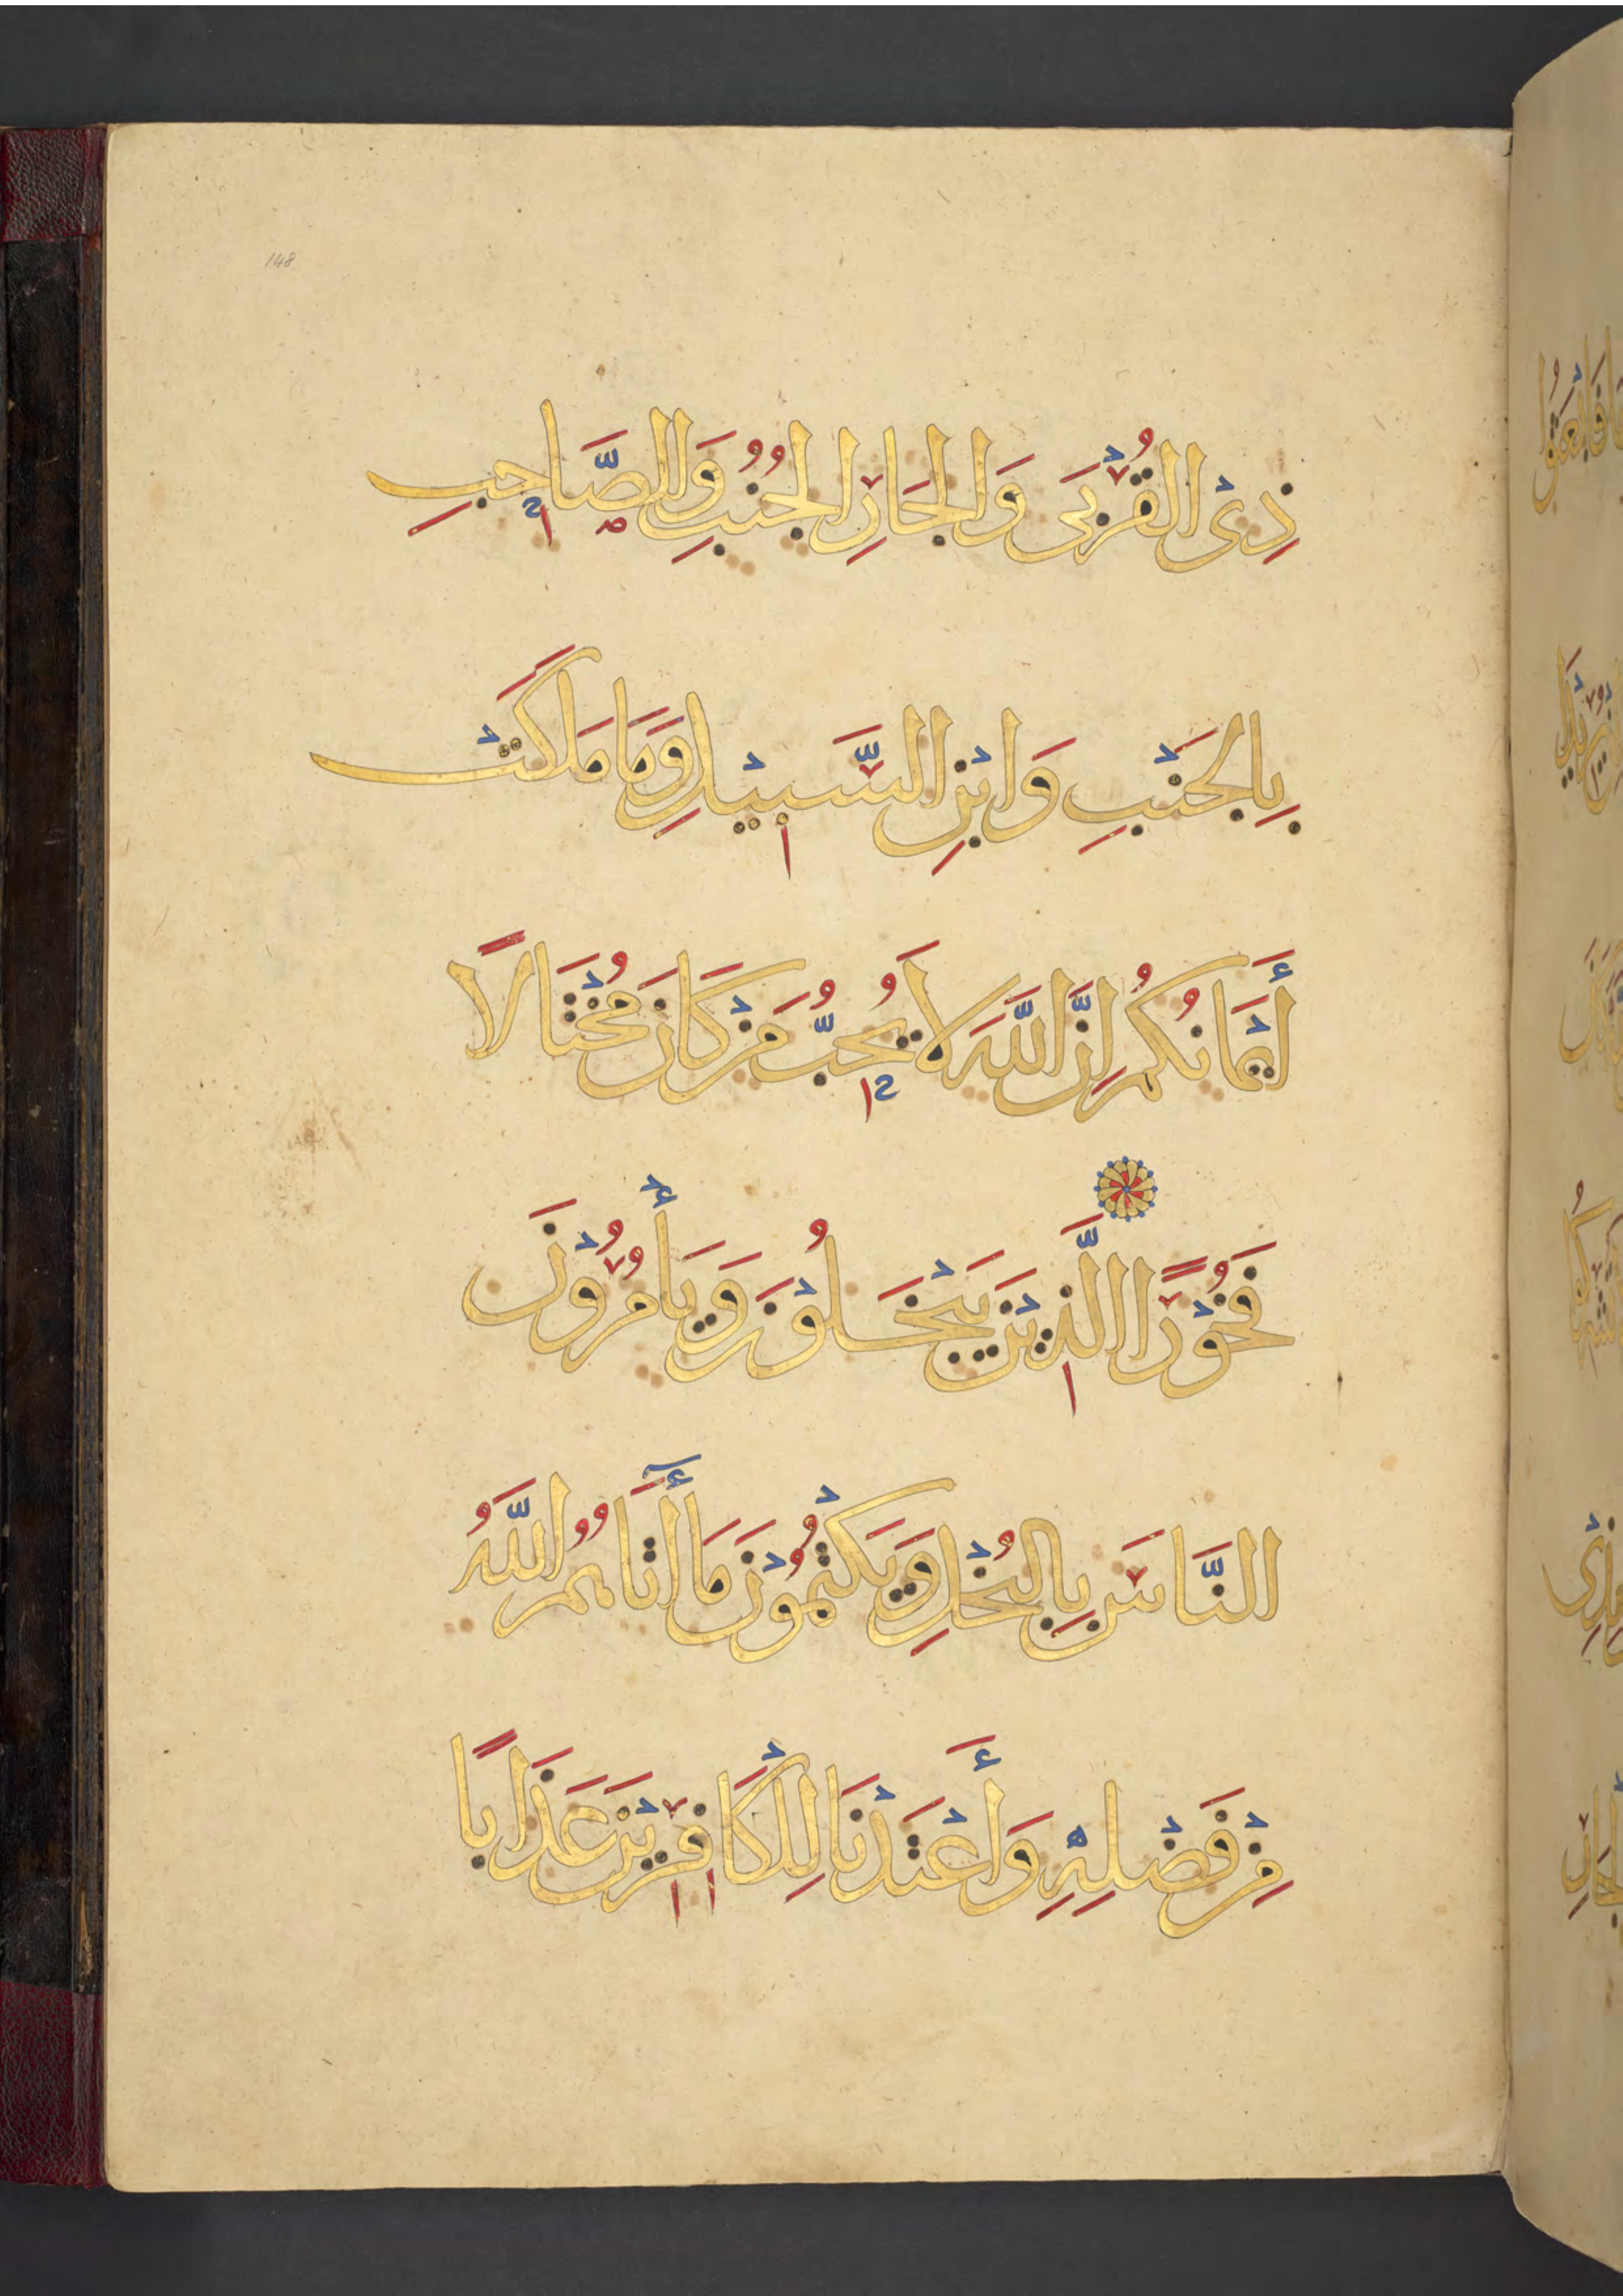 148
ذِى الْقُرْبَى وَالْجَارِ الْجُنُبِ وَالصَّاحِبِ
بِالْجَنْبِ وَابْنِ السَّبِيْلِ وَمَا مَلَكَتْ
أَيْمَانُكُمْ إِنَّ اللَّهَ لَا يُحِبُّ مَنْ كَانَ مُخْتَالًا
فَخُوْرًا الَّذِيْنَ يَبْخَلُوْنَ وَيَأْمُرُوْنَ
النَّاسَ بِالْبُخْلِ وَيَكْتُمُوْنَ مَا أَتَاهُمُ اللَّهُ
مِنْ فَضْلِهِ وَأَعْتَدْنَا لِلْكَافِرِيْنَ عَذَابًا